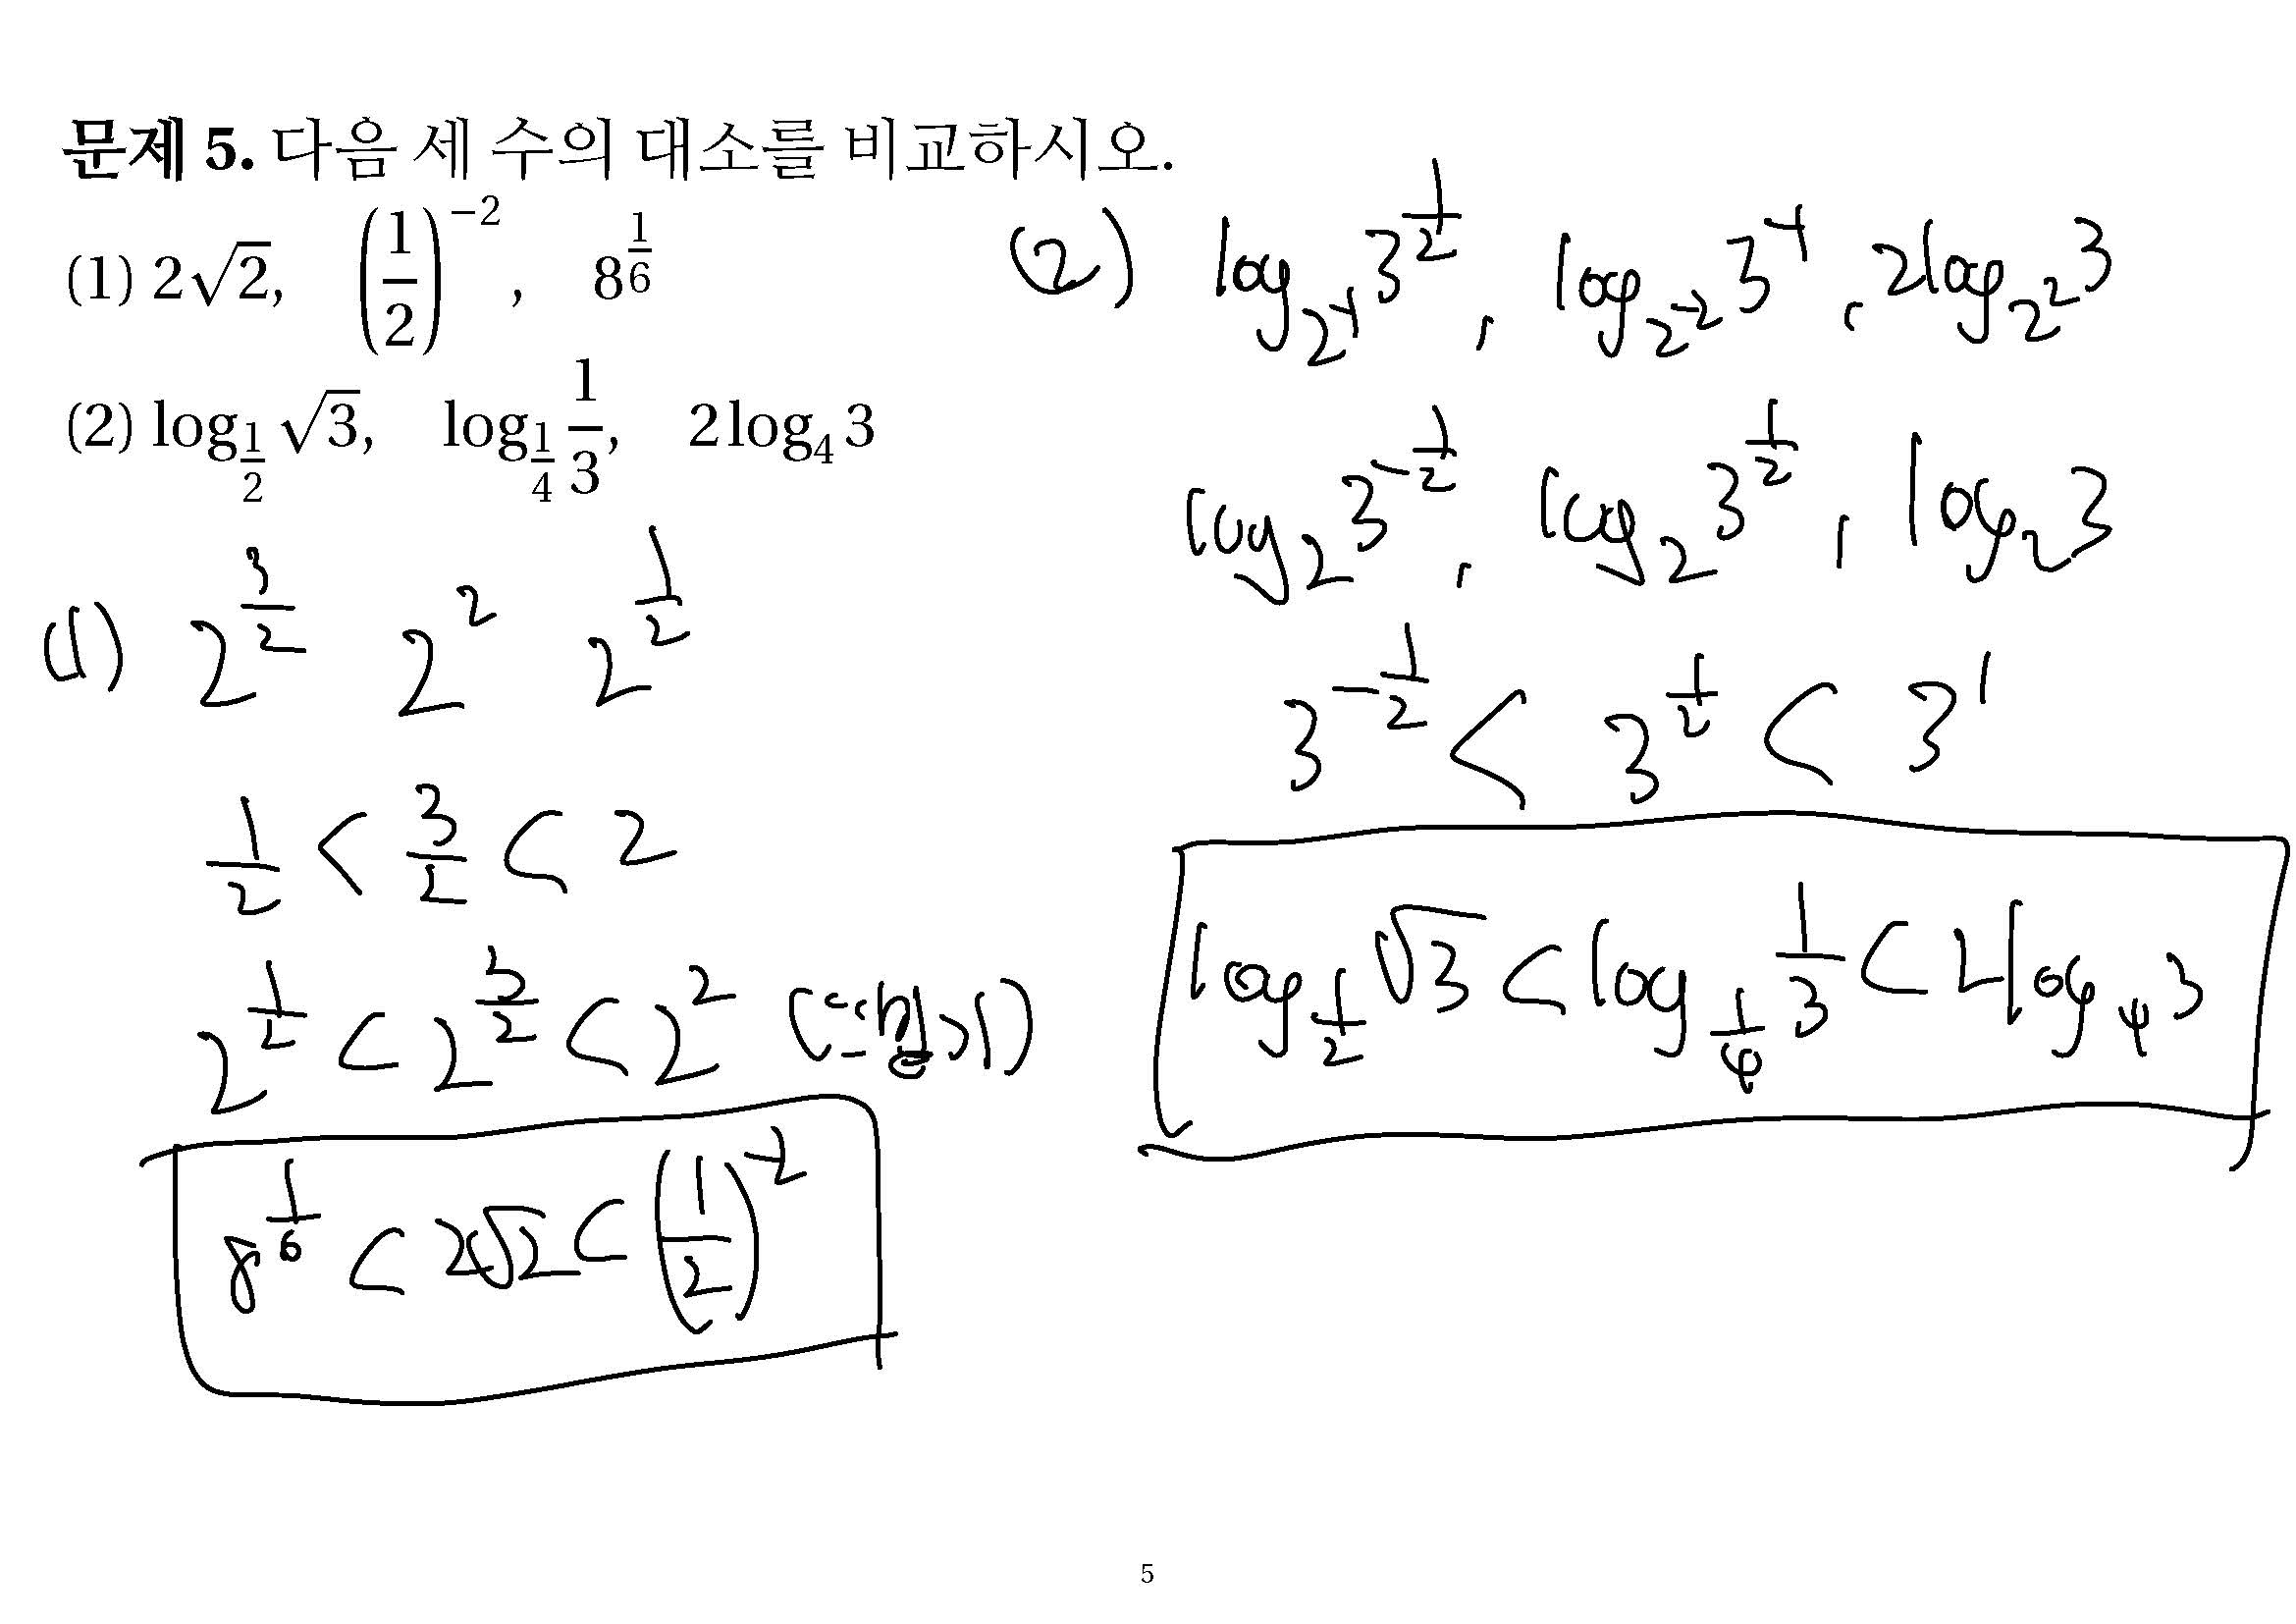 문제 5. 다음 세 수의 대소를 비교하시오.
(1) 2√2, (1/2)^{-2}, 8^{1/6}
(2) log_{1/2} √3, log_{1/4} 1/3, 2log_4 3
(1) 2^{3/2} 2^2 2^{1/2}
1/2 < 3/2 < 2
2^{1/2} < 2^{3/2} < 2^2 (∵ 밑>1)
8^{1/6} < 2√2 < (1/2)^{-2}
(2) log_{2^{-1}} 3^{1/2}, log_{2^{-2}} 3^{-1}, 2log_{2^2} 3
log_2 3^{-1/2}, log_2 3^{1/2}, log_2 3
3^{-1/2} < 3^{1/2} < 3^1
log_{1/2} √3 < log_{1/4} 1/3 < 2log_4 3
5